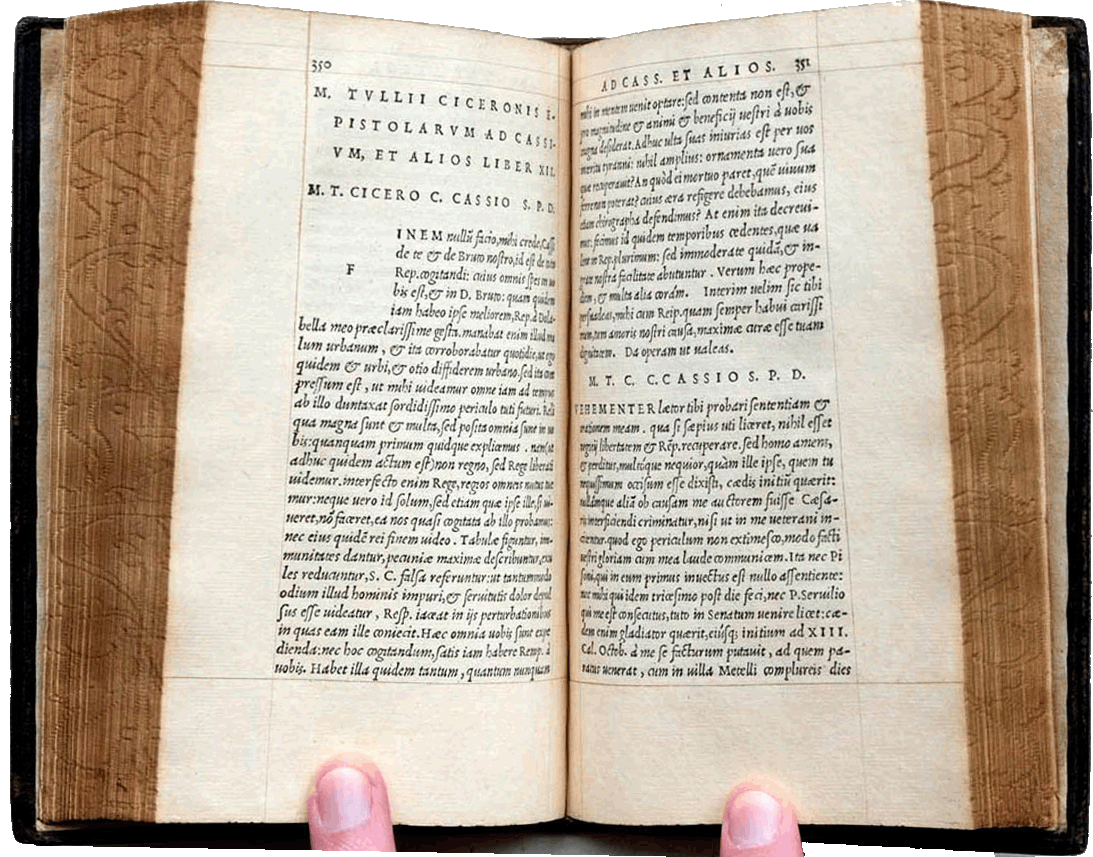 350
M. TVLLII CICERONIS E-
PISTOLARVM AD CASSI-
VM, ET ALIOS LIBER XII.
M. T. CICERO C. CASSIO S. P. D.
F
INEM nullũ facio, mihi crede, Caßi
de te & de Bruto nostro, id est de tota
Rep. cogitandi: cuius omnis spes in uo
bis est, & in D. Bruto: quam quidem
iam habeo ipse meliorem, Rep. à Dola-
bella meo præclarissime gesta. manabat enim illud ma
lum urbanum, & ita corroborabatur quotidie, ut ego
quidem & urbi, & otio diffiderem urbano. sed ita com
pressum est, ut mihi uideamur omne iam ad tempus
ab illo duntaxat sordidissimo periculo tuti futuri. Reli
qua magna sunt & multa, sed posita omnia sunt in uo
bis: quanquam primum quidque explicemus. nam(ut
adhuc quidem actum est) non regno, sed Rege liberati
uidemur. interfecto enim Rege, regios omneis nutus tue
mur: neque uero id solum, sed etiam quæ ipse ille, si ui-
ueret, nõ faceret, ea nos quasi cogitata ab illo probamus:
nec eius quidẽ rei finem uideo. Tabulæ figuntur, im-
munitates dantur, pecuniæ maximæ describuntur, exu
les reducuntur, S. C. falsa referuntur: ut tantummodo
odium illud hominis impuri, & seruitutis dolor depul
sus esse uideatur, Resp. iaceat in ijs perturbationibus
in quas eam ille coniecit. Hæc omnia uobis sunt expe
dienda: nec hoc cogitandum, satis iam habere Remp. à
uobis. Habet illa quidem tantum, quantum nunquam
AD CASS. ET ALIOS. 351
mihi in mentem uenit optare: sed contenta non est, &
pro magnitudine & animi & beneficij uestri à uobis
magna desiderat. Adhuc ulta suas iniurias est per uos
interitu tyranni: nihil amplius: ornamenta uero sua
quæ recuperauit? An quòd ei mortuo paret, quẽ uiuum
ferre non poterat? cuius æra refigere debebamus, eius
etiam chirographa defendimus? At enim ita decreui-
mus: fecimus id quidem temporibus cedentes, quæ ua
lent in Rep. plurimum: sed immoderate quidã, & in-
grate nostra facilitate abutuntur. Verum hæc prope-
diem, & multa alia corám. Interim uelim sic tibi
persuadeas, mihi cum Reip. quam semper habui carissi
mam, tum amoris nostri causa, maximæ curæ esse tuam
dignitatem. Da operam ut ualeas.
M. T. C. C. CASSIO S. P. D.
VEHEMENTER lætor tibi probari sententiam &
orationem meam. qua si sæpius uti liceret, nihil esset
negotij libertatem & Rẽp. recuperare. sed homo amens,
& perditus, multóque nequior, quàm ille ipse, quem tu
nequissimum occisum esse dixisti, cædis initiũ quærit:
nullámque aliã ob causam me auctorem fuisse Cæsa-
ris interficiendi criminatur, nisi ut in me ueterani in-
citentur. quod ego periculum non extimesco, modo facti
uestri gloriam cum mea laude communicem. Ita nec Pi
soni, qui in eum primus inuectus est nullo assentiente:
nec mihi qui idem tricesimo post die feci, nec P. Seruilio
qui me est consecutus, tuto in Senatum uenire licet: cæ-
dem enim gladiator quærit, eiúsq; initium ad XIII.
Cal. Octob. à me se facturum putauit, ad quem pa-
ratus uenerat, cum in uilla Metelli complureis dies